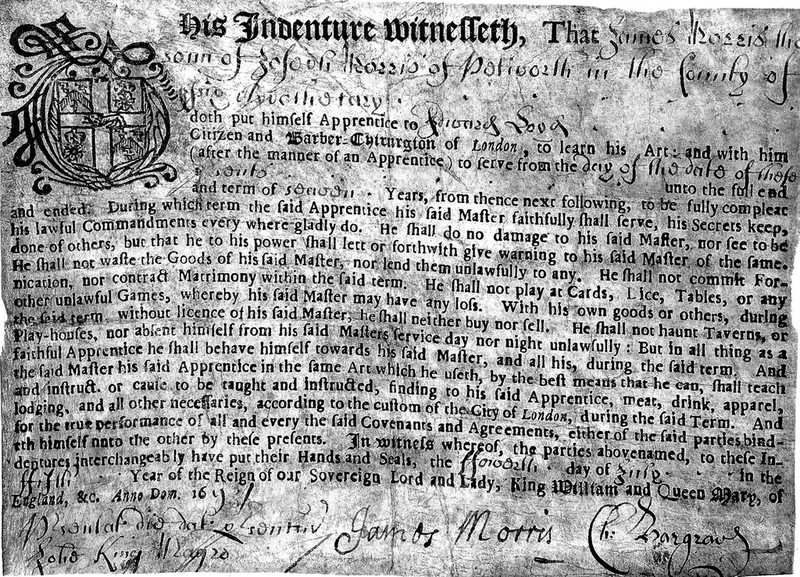 This Indenture Witnesseth, That James Morris the
sonn of Joseph Morris of Petworth in the County of
doth put himself Apprentice to Edward
Citizen and Barber-Chirurgion of London, to learn his Art: and with him
(after the manner of an Apprentice) to serve from the day of the date of these
unto the full end
and term of seaven Years, from thence next following, to be fully compleat
and ended. During which term the said Apprentice his said Master faithfully shall serve, his Secrets keep,
his lawful Commandments every where gladly do. He shall do no damage to his said Master, nor see to be
done of others, but that he to his power shall lett or forthwith give warning to his said Master of the same.
He shall not waste the Goods of his said Master, nor lend them unlawfully to any. He shall not commit For-
nication, nor contract Matrimony within the said term. He shall not play at Cards, Dice, Tables, or any
other unlawful Games, whereby his said Master may have any loss. With his own goods or others, during
the said term, without licence of his said Master; he shall neither buy nor sell. He shall not haunt Taverns, or
Play-houses, nor absent himself from his said Masters service day nor night unlawfully: But in all thing as a
faithful Apprentice he shall behave himself towards his said Master, and all his, during the said term. And
the said Master his said Apprentice in the same Art which he useth, by the best means that he can, shall teach
and instruct, or cause to be taught and instructed, finding to his said Apprentice, meat, drink, apparel,
lodging, and all other necessaries, according to the custom of the City of London, during the said Term. And
for the true performance of all and every the said Covenants and Agreements, either of the said parties bind-
eth himself unto the other by these presents. In witness whereof, the parties abovenamed, to these In-
dentures interchangeably have put their Hands and Seals, the day of July in the
Year of the Reign of our Sovereign Lord and Lady, King William and Queen Mary, of
England, &c. Anno Dom. 169
James Morris Ch: Hargrave
John King